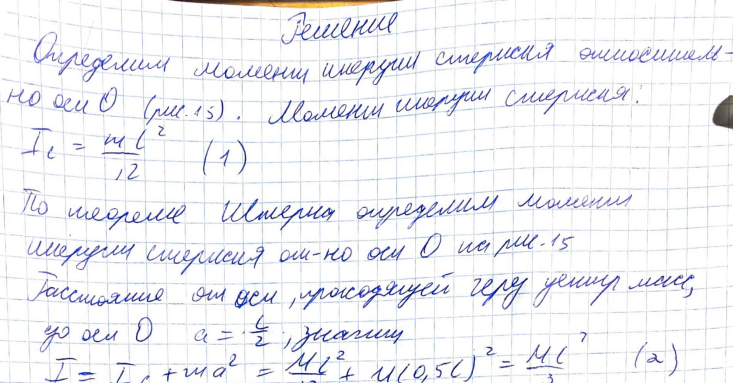 Решение
Определим момент инерции стержня относитель-
но оси О (рис. 15). Момент инерции стержня:
I_c = ml²/12 (1)
По теореме Штерна определим момент
инерции стержня от-но оси О на рис. 15
Расстояние от оси, проходящей через центр масс,
до оси О a = l/2, значит
I = I_c + ma² = Ml²/12 + M(0,5l)² = Ml²/3 (2)